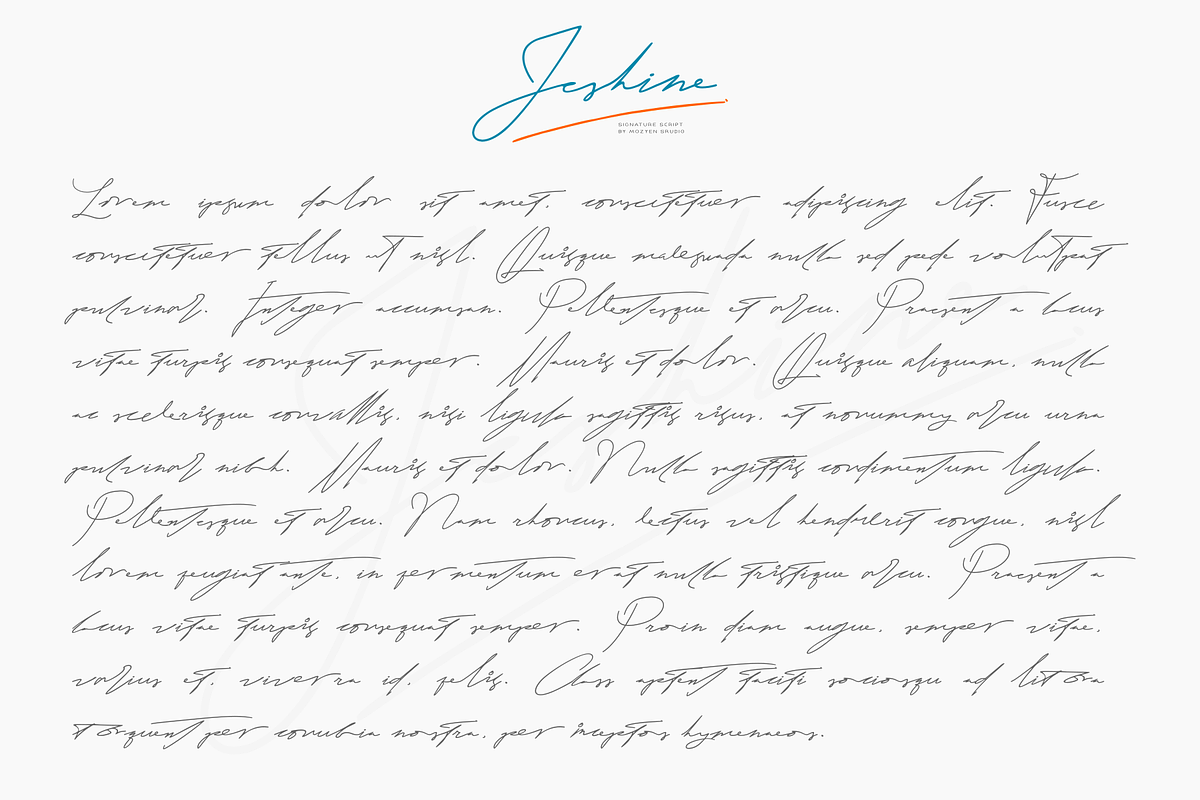 Jeshine
SIGNATURE SCRIPT
BY MOZYEN SRUDIO
Lorem ipsum dolor sit amet, consectetuer adipiscing elit. Fusce
consectetuer tellus ut nisl. Quisque malesuada nulla sed pede volutpat
pulvinar. Integer accumsan. Pellentesque et arcu. Praesent a lacus
vitae turpis consequat semper. Mauris et dolor. Quisque aliquam, nulla
ac scelerisque convallis, nisi ligula sagittis risus, at nonummy arcu urna
pulvinar nibh. Mauris et dolor. Nulla sagittis condimentum ligula.
Pellentesque et arcu. Nam rhoncus, lectus vel hendrerit congue, nisl
lorem feugiat ante, in fermentum erat nulla tristique arcu. Praesent a
lacus vitae turpis consequat semper. Proin diam augue, semper vitae,
varius et, viverra id, felis. Class aptent taciti sociosqu ad litora
torquent per conubia nostra, per inceptos hymenaeos.